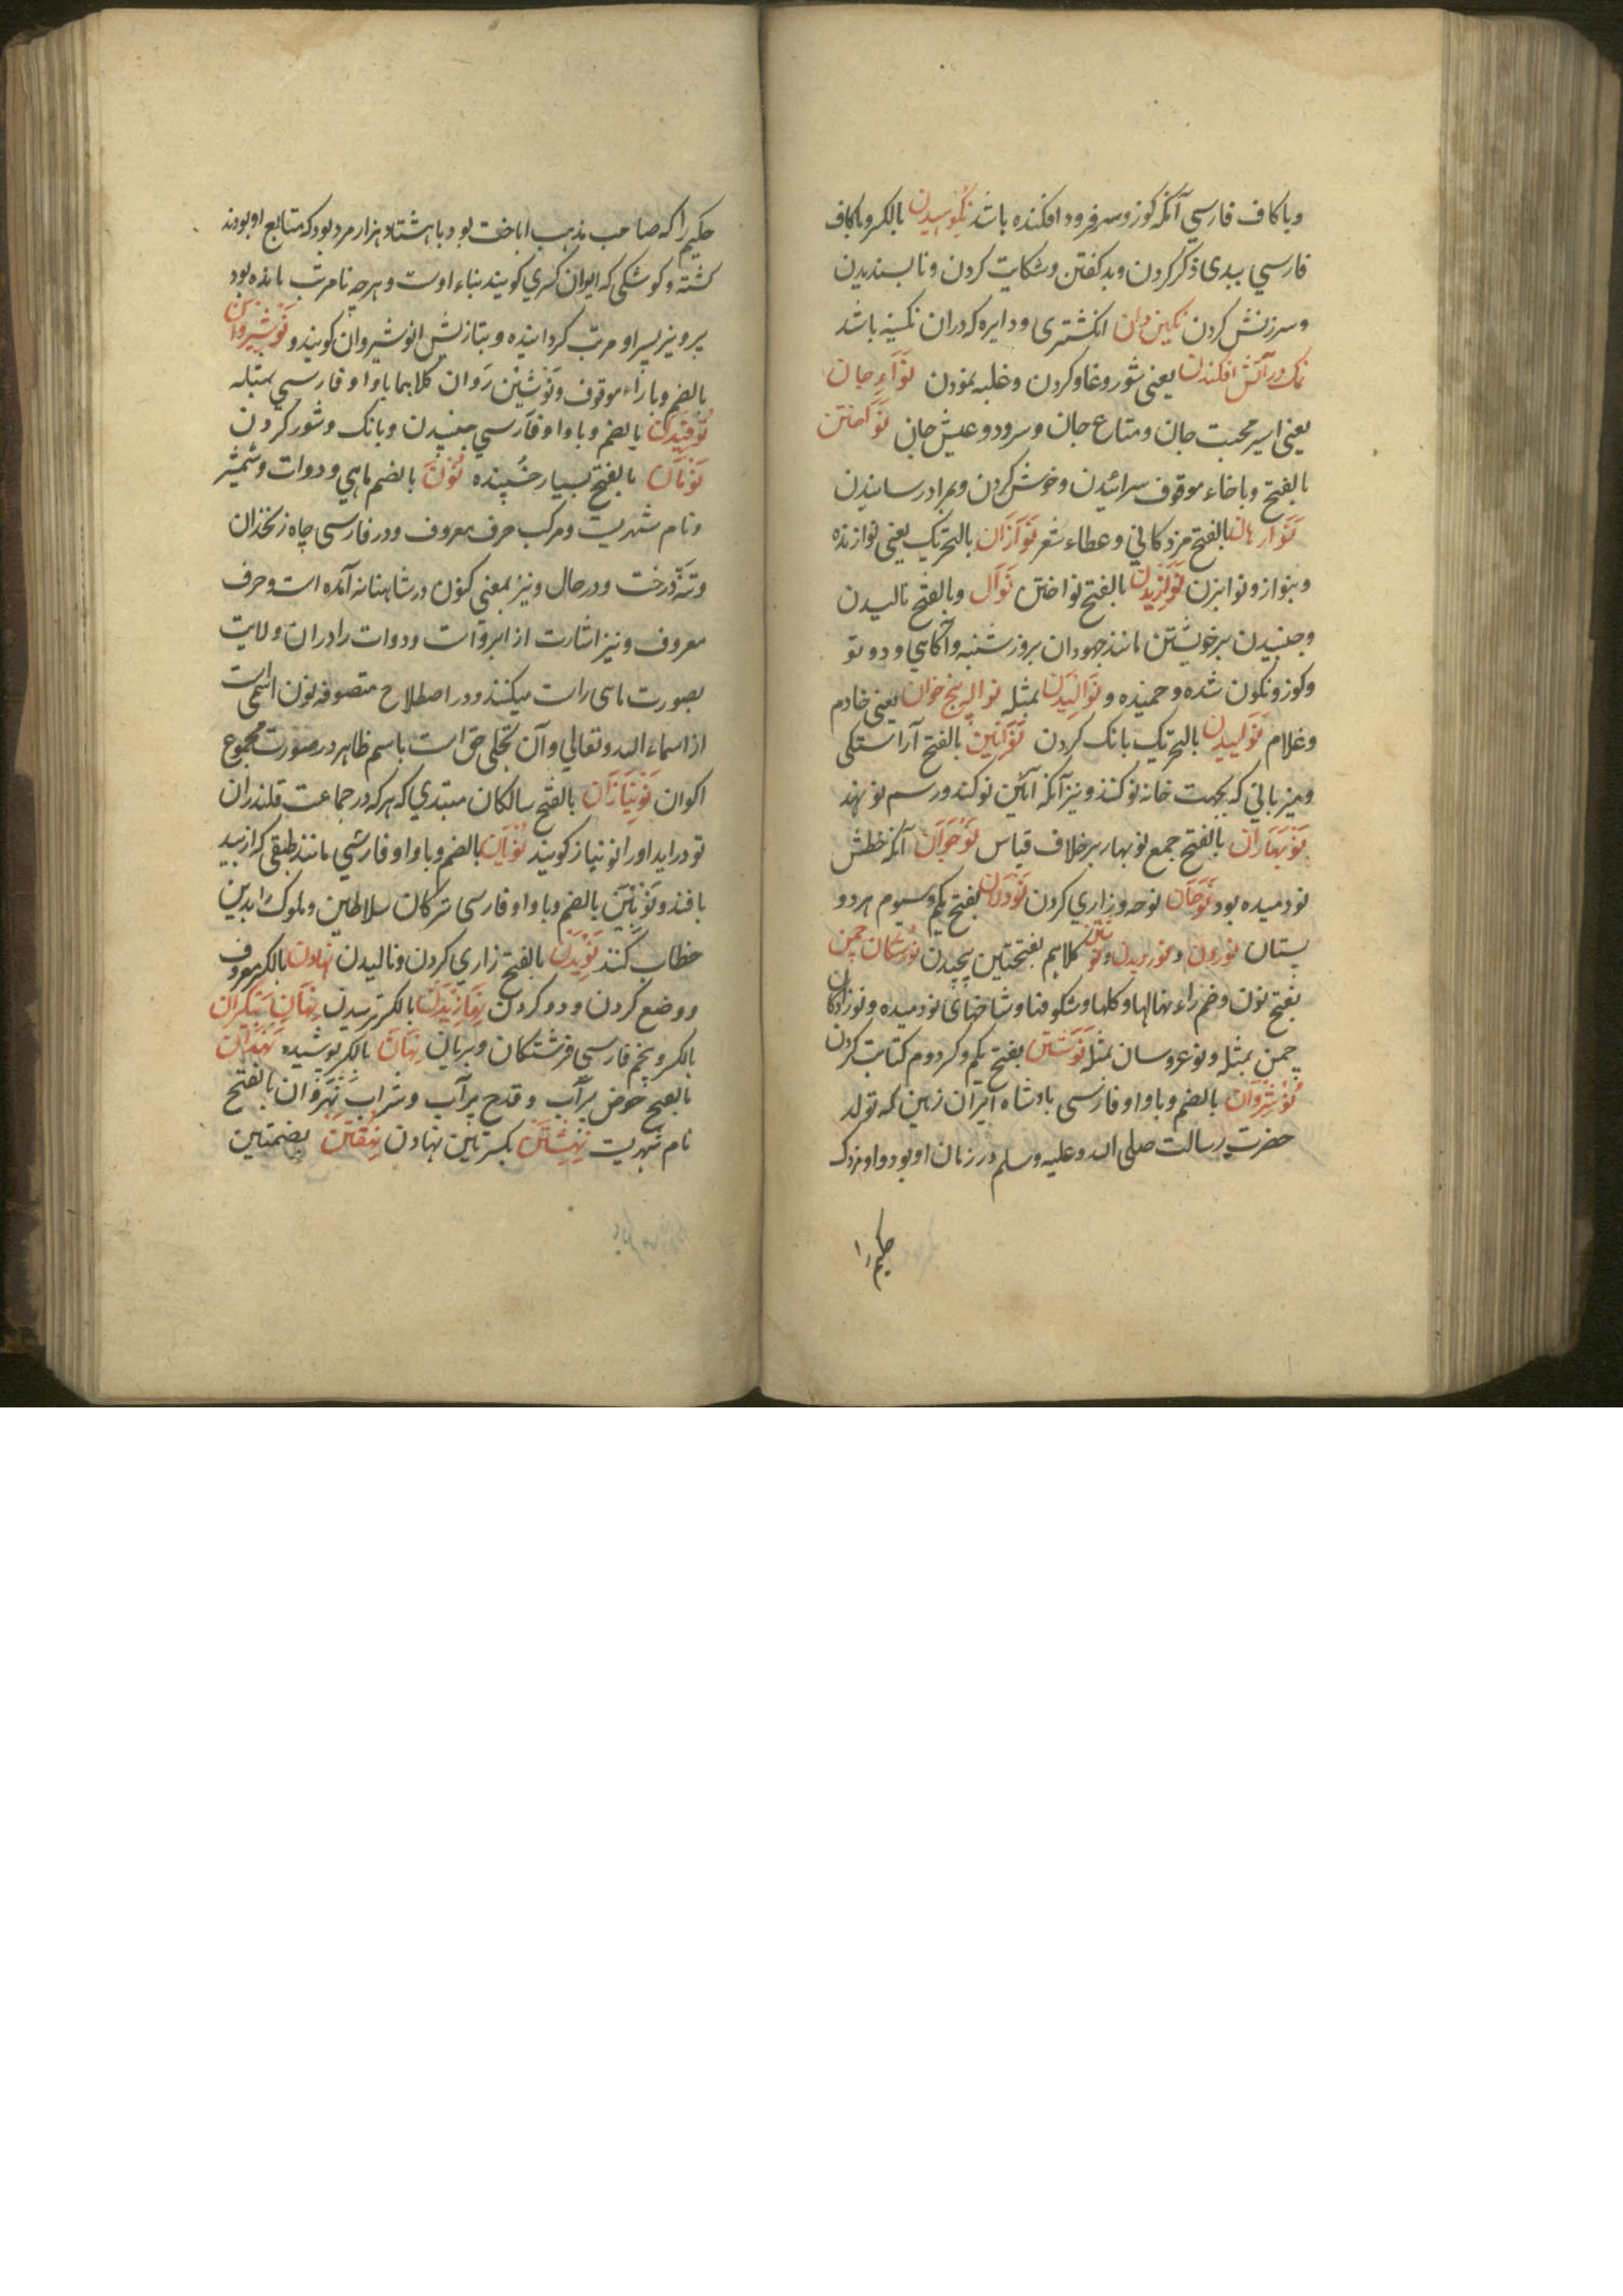 وباکاف فارسي آنکه کوز وسر فرود افکنده باشد نِکُوهیدن بالکسر وباکاف
فارسي ببدی ذکر کردن وبد کفتن وشکایت کردن ونا پسندیدن
وسرزنش کردن نکین دان انکشتری ودایره که دران نکینه باشد
نمک در آتش افکندن یعنی شور وغاو کردن وغلبه نمودن نَوَاءِ جان
یعنی اسیر محبت جان ومتاع جان وسرود وعیش جان نَوَاختن
بالفتح وباخاء موقوف سرائیدن وخوش کردن وبمراد رسانیدن
نَوَارهان بالفتح مزدکاني وعطاء شعر نَوَازَان بالتحریک یعنی نوازنده
وبنواز ونوا بزن بالفتح نواختن نَوَال وبالفتح نالیدن
وجنبیدن برخویشتن مانند جهودان بروز شنبه وآکاهي ودو تو
وکوز ونکون شده وخمیده و نَوَالِیدَن بمثله نواله پنج خوان یعنی خادم
وغلام نَوَلیدن بالتحریک بانک کردن نَوَآئین بالفتح آراستکی
ومیزباني که بجهت خانه نو کنند ونیز آنکه آئین نو کند ورسم نو نهد
نَوبَهَاران بالفتح جمع نوبهار برخلاف قیاس نَوجَوَان آنکه خطش
نو دمیده بود نَوحَان نوحه وزاري کردن نَودَرَان بفتح یکم وسیوم هر دو
بستان نوردن و نوردیدن و کلاهم بفتحتین پیچیدن نُورُستکان چمن
بفتح نون وضم راء نهالها وکلها وشکوفها وشاخهای نو دمیده ونوزادکان
چمن بمثله ونوعروسان بمثله نَوِشتَن بفتح یکم وکسر دوم کتابت کردن
نُوشِروَان بالضم وباواو فارسی بادشاه ایران زمین که تولد
حضرت رسالت صلی الله وعلیه وسلم در زمان او بود واو مزدک
حکیم را
حکیم را که صاحب مذهب اباحت بود باهشتاد هزار مرد بود که متابع او بودند
کشته وکوشکی که ایوان کسري کویند بناء اوست وهرچه نامرتب مانده بود
پرویز پسر او مرتب کردانیده وبتازیش انوشیروان کویند و نَوشِیروان
بالضم وباراء موقوف ونَوشین رَوان کلاهما باواو فارسي بمثله
نُوفیدَن بالضم وباواو فارسي جنبیدن وبانک وشور کردن
نَومَان بالفتح بسیار خسپنده نُون بالضم ماهي ودوات وشمشیر
ونام شهریست ومرکب حرف معروف ودر فارسی چاه زنخدان
وتنه درخت ودر حال ونیز بمعنی کنون در شاهنامه آمده است وحرف
معروف ونیز اشارت از ابروانست ودوات را در آن ولایت
بصورت ماهی راست میکنند ودر اصطلاح متصوفه نون اسمی است
از اسماء الله وتعالي وآن تجلی حق است باسم ظاهر در صورت مجموع
اکوان نَونِیَازَان بالفتح سالکان مبتدي که هر که در جماعت قلندران
نو درآید اورا نونیاز کویند نُویَان بالضم وباواو فارسي مانند طبقی که از بید
بافند ونُوئین بالضم وباواو فارسی ترکان سلاطین وملوک را بدین
خطاب کنند نَوِیدَن بالفتح زاري کردن ونالیدن نهادن بالکسر معروف
ووضع کردن ودو کردن نِهَازِیدَن بالکسر ترسیدن نِهَانِ پَیکَران
بالکسر وبجم فارسی فرشتکان وپریان نِهَان بالکسر پوشیده
بالفتح حوض پرآب وقدح پرآب وشراب نَهرَوَان بالفتح
نام شهریست نِهِشتَن بکسرتین نهادن نُهُفتَن بضمتین